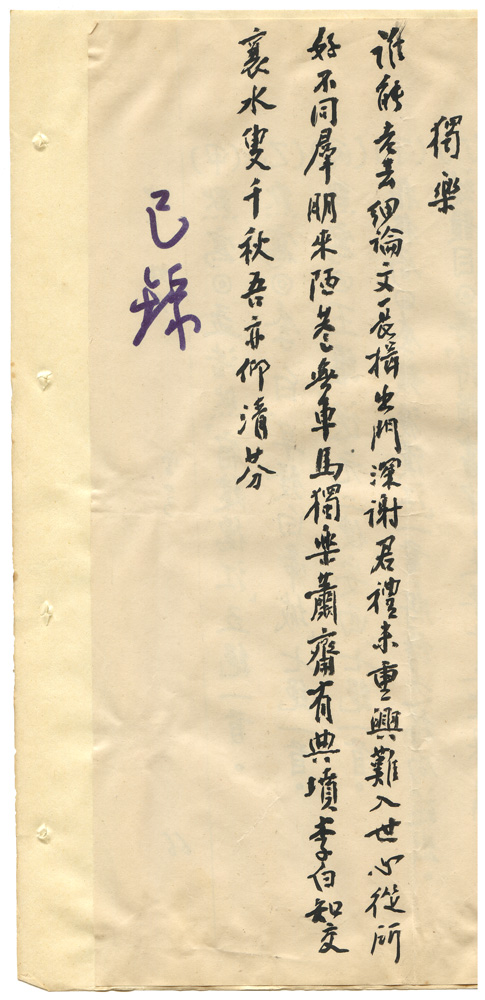 獨樂
誰能老去細論文長揖出門深謝君禮未重興難入世心從所
好不同羣朋來陋巷無車馬獨樂蕭齋有典墳李白知交
襄水叟千秋吾亦仰清芬
已錄